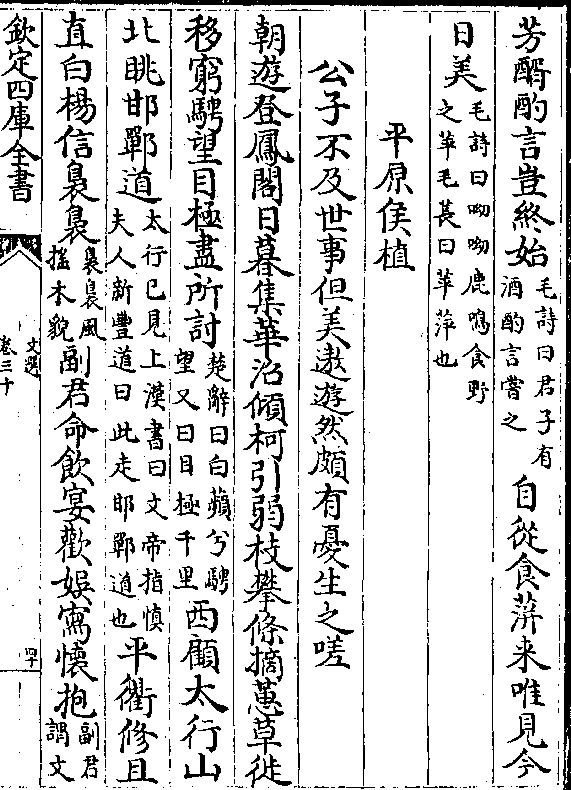 芳醑酌言豈終始毛詩曰君子有酒酌言嘗之自從食蓱来唯見今
日美毛詩曰呦呦鹿鳴食野之苹毛萇曰苹萍也
平原侯植
公子不及世事但美遨遊然頗有憂生之嗟
朝遊登鳳閣日暮集華沼傾柯引弱枝攀條摘蕙草徙
移窮騁望目極盡所討楚辭曰白蘋兮騁望又曰目極千里西顧太行山
北眺邯鄲道太行已見上漢書曰文帝指慎夫人新豐道曰此走邯鄲道也平衢修且
直白楊信裊裊裊裊風搖木貌副君命飲宴歡娯寫懷抱副君謂文
欽定四庫全書
文選
卷三十
四十